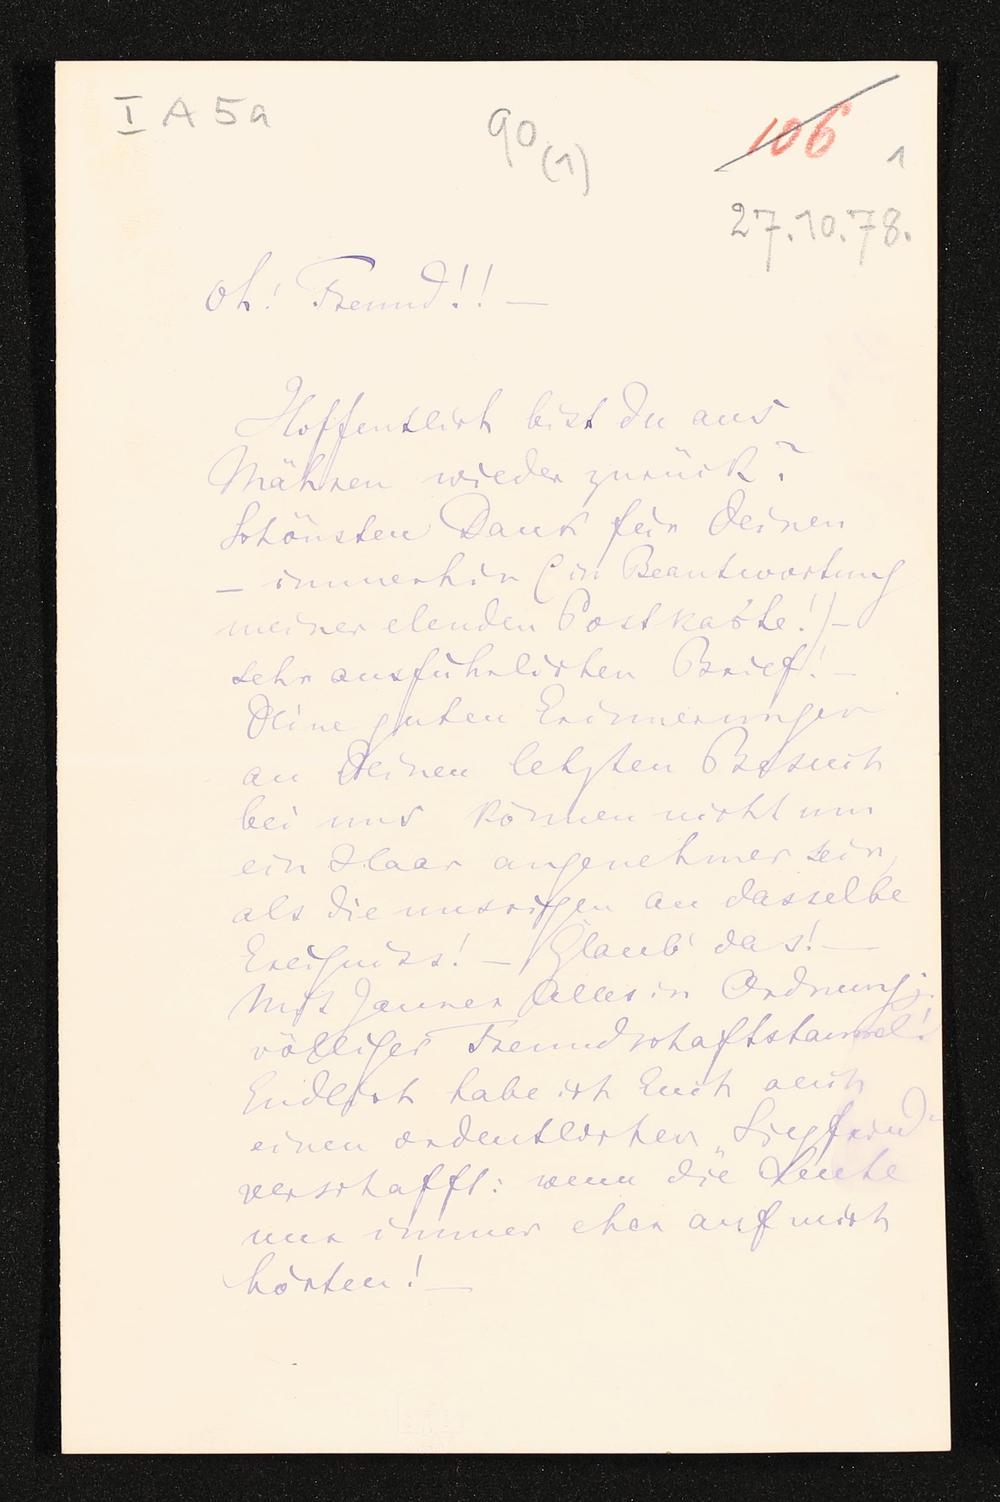 I A 5a
90 (1)
106
1
27.10.78.
Oh! Freund!! —
Hoffentlich bist Du aus
Mähren wieder zurück?
Schönsten Dank für Deinen
— immerhin (in Beantwortung
meiner elenden Postkarte!) —
sehr ausführlichen Brief! —
Deine guten Erinnerungen
an Deinen letzten Besuch
bei uns können nicht um
ein Haar angenehmer sein,
als die unsrigen an dasselbe
Ereigniss! — Glaub' das! —
Mit Jauner Alles in Ordnung;
völliger Freundschaftstaumel!
Endlich habe ich Euch auch
einen ordentlichen „Siegfried"
verschafft: wenn die Leute
nur immer eher auf mich
hörten! —